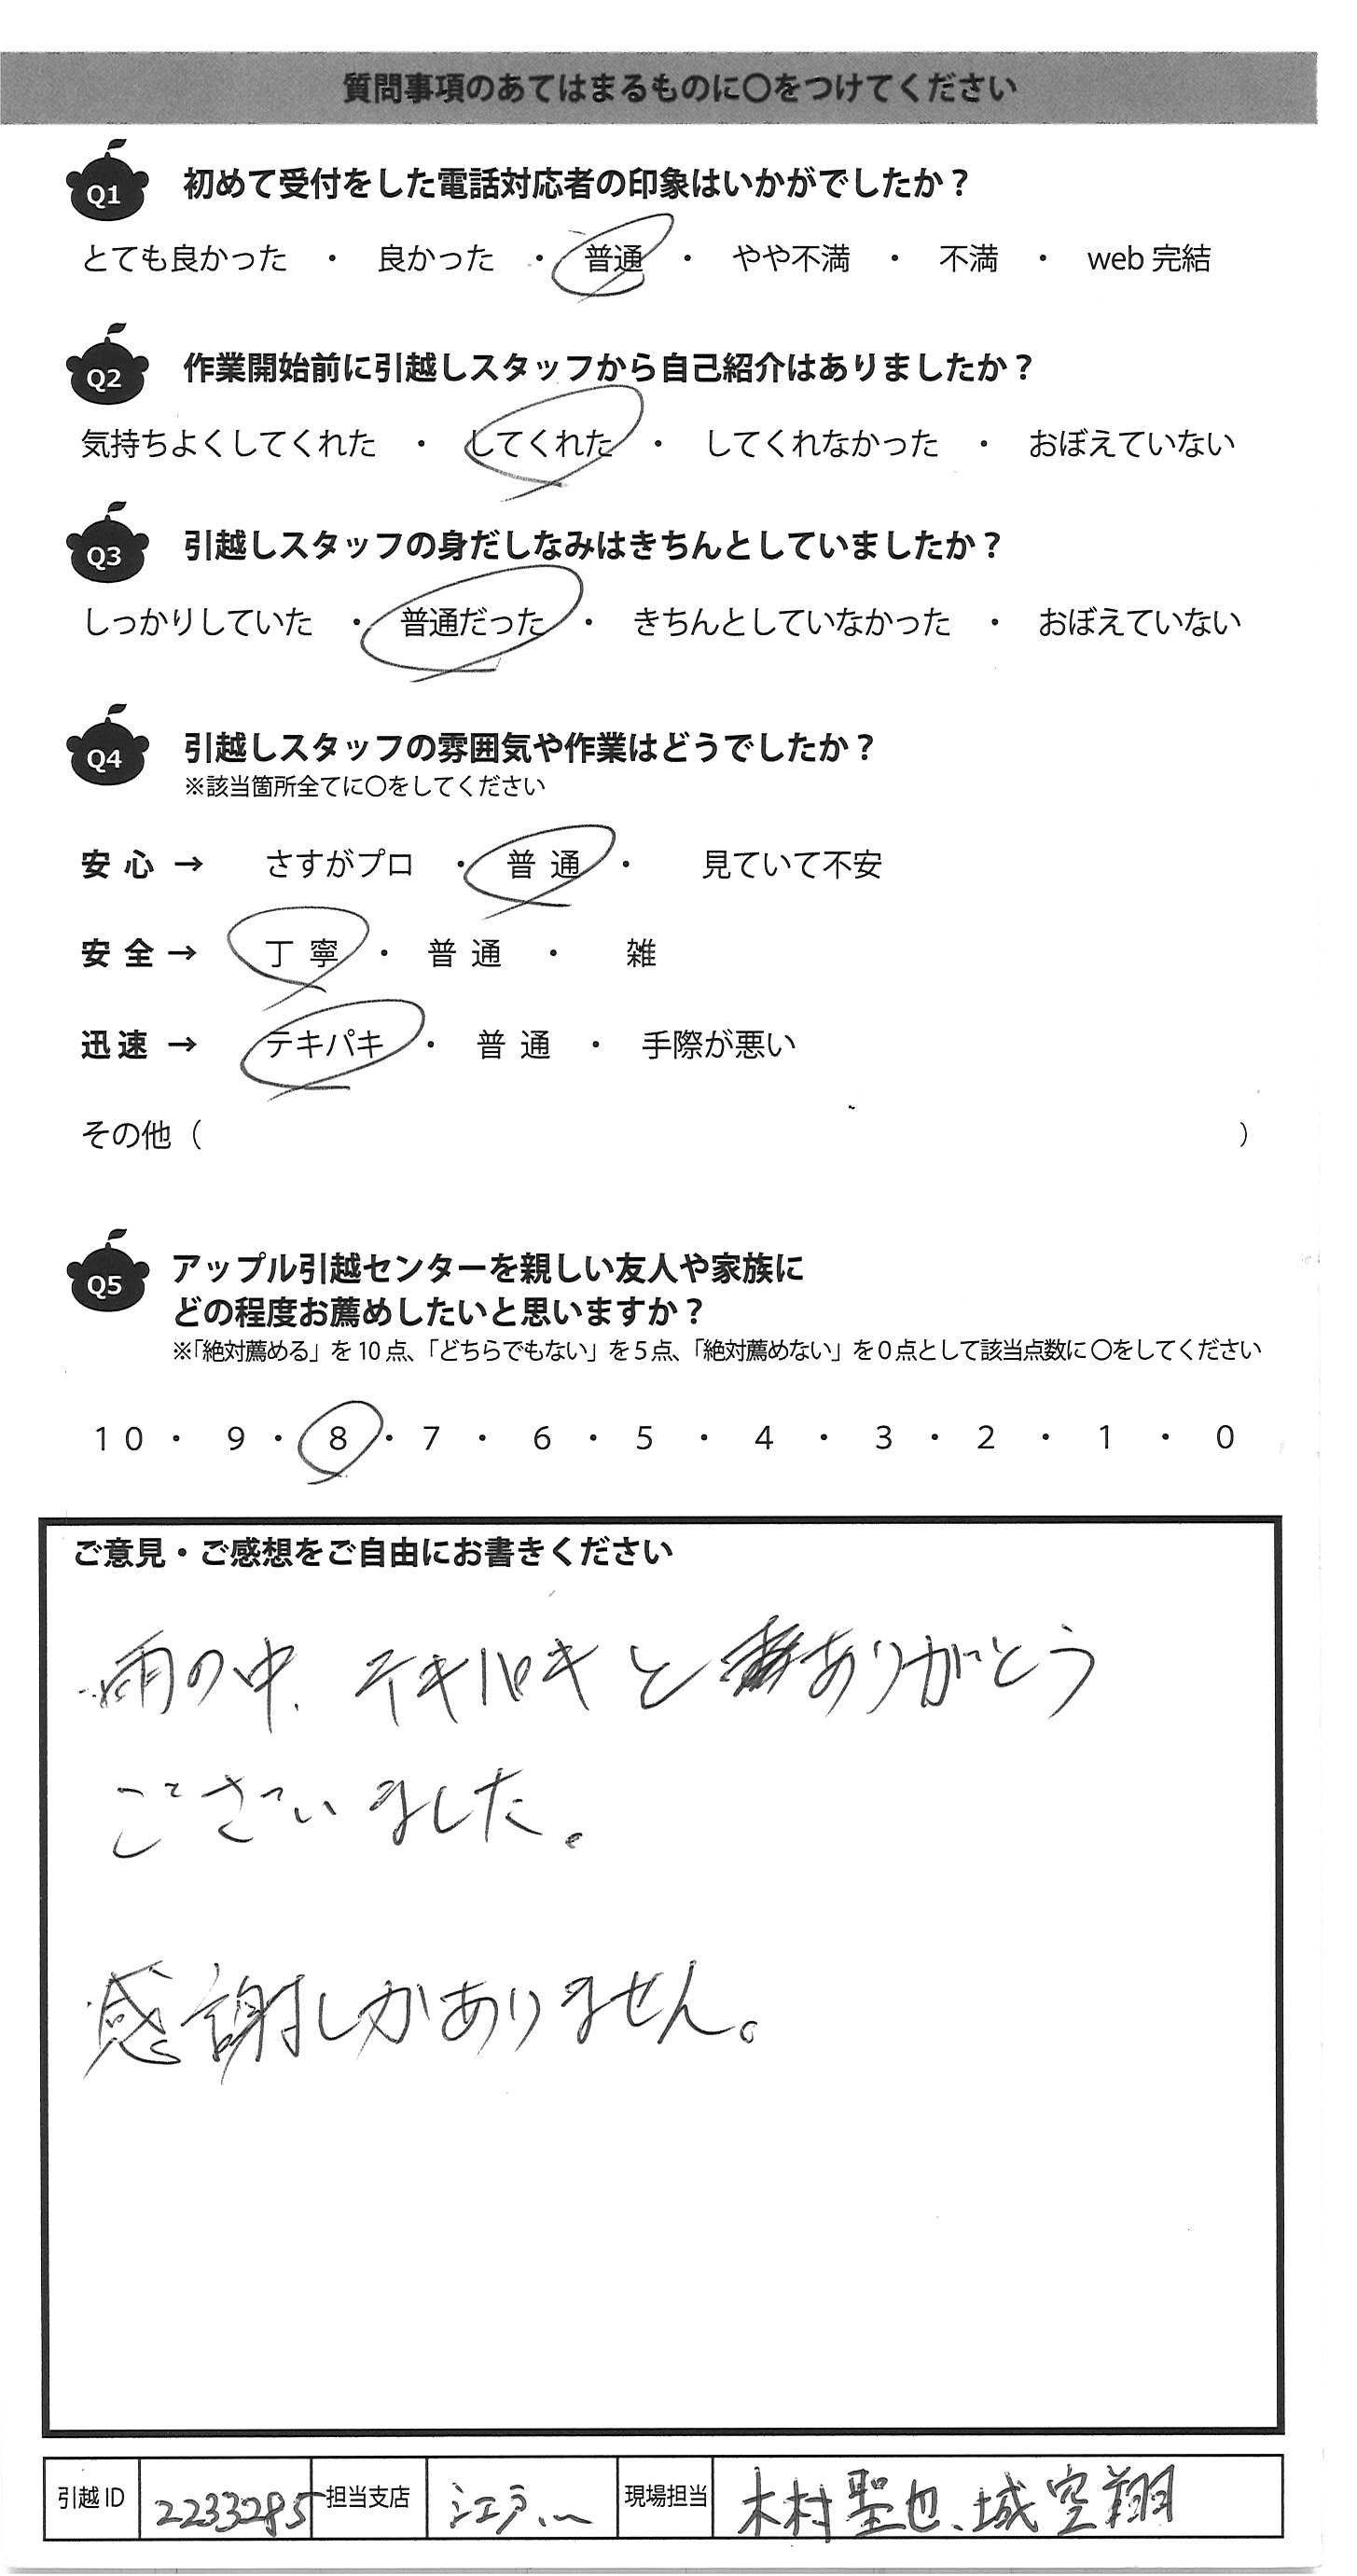 質問事項のあてはまるものに〇をつけてください
Q1 初めて受付をした電話対応者の印象はいかがでしたか？
とても良かった ・ 良かった ・ 普通 ・ やや不満 ・ 不満 ・ web 完結
Q2 作業開始前に引越しスタッフから自己紹介はありましたか？
気持ちよくしてくれた ・ してくれた ・ してくれなかった ・ おぼえていない
Q3 引越しスタッフの身だしなみはきちんとしていましたか？
しっかりしていた ・ 普通だった ・ きちんとしていなかった ・ おぼえていない
Q4 引越しスタッフの雰囲気や作業はどうでしたか？
※該当箇所全てに〇をしてください
安心 → さすがプロ ・ 普通 ・ 見ていて不安
安全 → 丁寧 ・ 普通 ・ 雑
迅速 → テキパキ ・ 普通 ・ 手際が悪い
その他（ ）
Q5 アップル引越センターを親しい友人や家族に
どの程度お薦めしたいと思いますか？
※「絶対薦める」を10点、「どちらでもない」を5点、「絶対薦めない」を0点として該当点数に〇をしてください
10 ・ 9 ・ 8 ・ 7 ・ 6 ・ 5 ・ 4 ・ 3 ・ 2 ・ 1 ・ 0
ご意見・ご感想をご自由にお書きください
雨の中、テキパキと ありがとう
ございました。
感謝しかありません。
引越ID 2233285 担当支店 江戸川 現場担当 木村聖也、城空翔